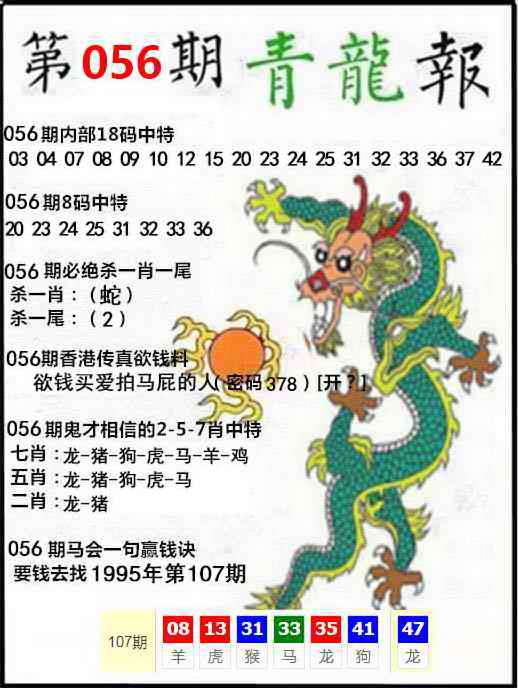 第056期青龍報
056期内部18码中特
03 04 07 08 09 10 12 15 20 23 24 25 31 32 33 36 37 42
056期8码中特
20 23 24 25 31 32 33 36
056 期必绝杀一肖一尾
杀一肖：（蛇）
杀一尾：（2）
056期香港传真欲钱料
欲钱买爱拍马屁的人（密码378）[开？]
056期鬼才相信的2-5-7肖中特
七肖：龙-猪-狗-虎-马-羊-鸡
五肖：龙-猪-狗-虎-马
二肖：龙-猪
056 期马会一句赢钱诀
要钱去找1995年第107期
107期 08 13 31 33 35 41 47
羊 虎 猴 马 龙 狗 龙